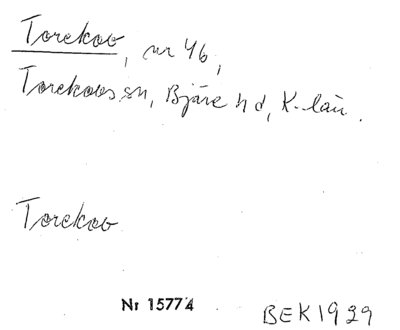 Torekov, nr 46,
Torekovs sn, Bjäre hd, K-län.
Torekov
Nr 15774
BEK 1929